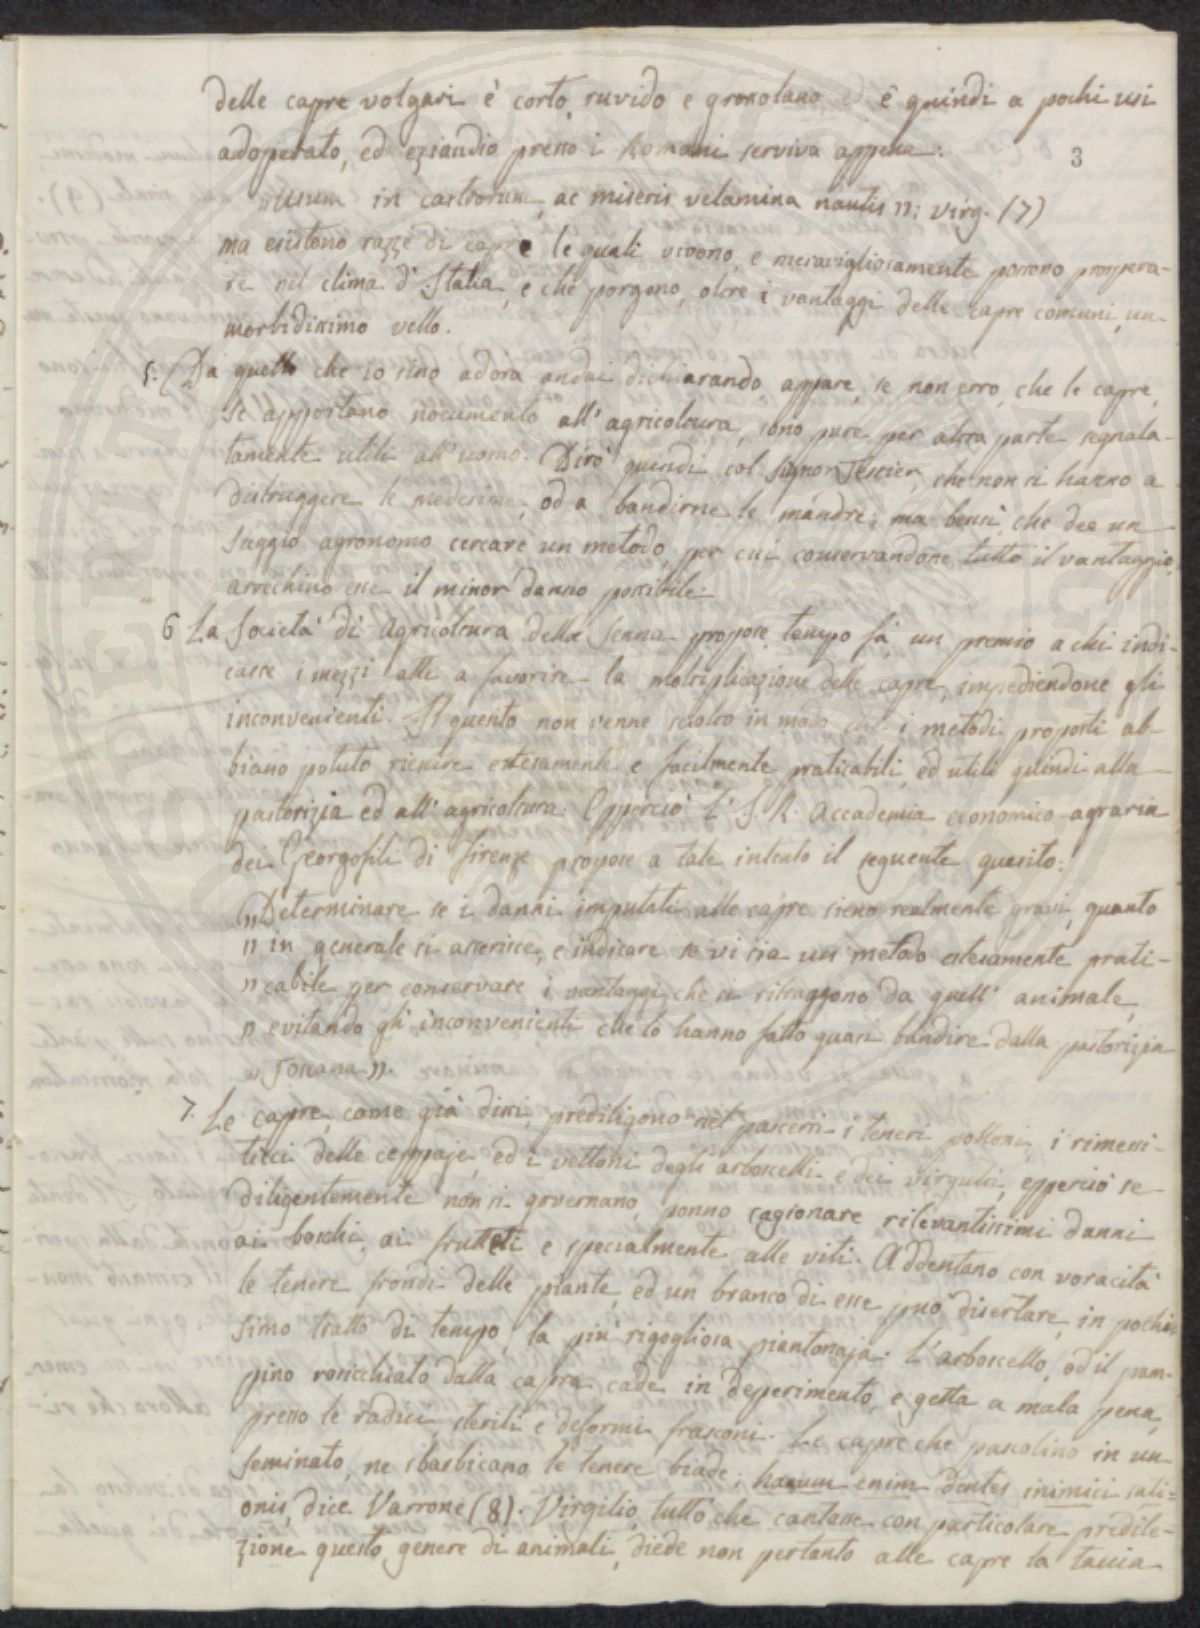 delle capre volgari è corto, ruvido e grossolano, ed è quindi a pochi usi
adoperato, ed eziandio presso i Romani serviva appena:
3
"Usum in castrorum, ac miseris velamina nautis": virg. (7)
ma esistono razze di capre le quali vivono, e meravigliosamente possono prospera-
re nel clima d'Italia, e che porgono, oltre i vantaggi delle capre comuni, un
morbidissimo vello.
5. Da quello che io sino adora andai dichiarando, appare, se non erro, che le capre,
se apportano nocumento all'agricoltura, sono pure per altra parte segnala-
tamente utili all'uomo. Dirò quindi col Signor Tessier, che non si hanno a
distruggere le medesime, od a bandirne le mandre; ma bensì che dee un
saggio agronomo cercare un metodo, per cui conservandone tutto il vantaggio,
arrechino esse il minor danno possibile.
6 La Società di Agricoltura della Senna propose tempo fà, un premio a chi indi-
casse i mezzi atti a favorire la moltiplicazione delle capre, impediendone gli
inconvenienti. Il quesito non venne sciolto in modo che i metodi proposti ab-
biano potuto riescire estesamente e facilmente praticabili, ed utili quindi alla
pastorizia ed all'agricoltura. Eppercio' l'I. R. Accademia economico-agraria
dei Georgofili di Firenze propose a tale intento il seguente quesito:
"Determinare se i danni imputati alle capre sieno realmente gravi, quanto
" in generale si asserisce, e indicare se vi sia un metodo estesamente prati-
" cabile per conservare i vantaggi, che si ritraggono da quell'animale,
" evitando gl'inconvenienti che lo hanno fatto quasi bandire dalla pastorizia
" Toscana".
7. Le capre, come già dissi, prediligono nel pascersi i teneri polloni, i rimessi-
ticci delle ceppaje, ed i vettoni degli arboscelli e dei virgulti, eppercio' se
diligentemente non si governano, ponno cagionare rilevantissimi danni
ai boschi, ai frutteti e specialmente alle viti. Addentano con voracità
le tenere frondi delle piante, ed un branco di esse può disertare, in pochis
simo tratto di tempo, la più rigogliosa piantonaja. L'arboscello, od il pam-
pino rosicchiato dalla capra cade in deperimento, e getta a mala pena,
presso le radici, sterili e deformi frasconi. Le capre che pascolino in un
seminato, ne sbarbicano le tenere biade; harum enim dentes inimici sati=
onis, dice Varrone (8). Virgilio, tutto che cantasse con particolare predile-
zione questo genere di animali, diede non pertanto alle capre la taccia